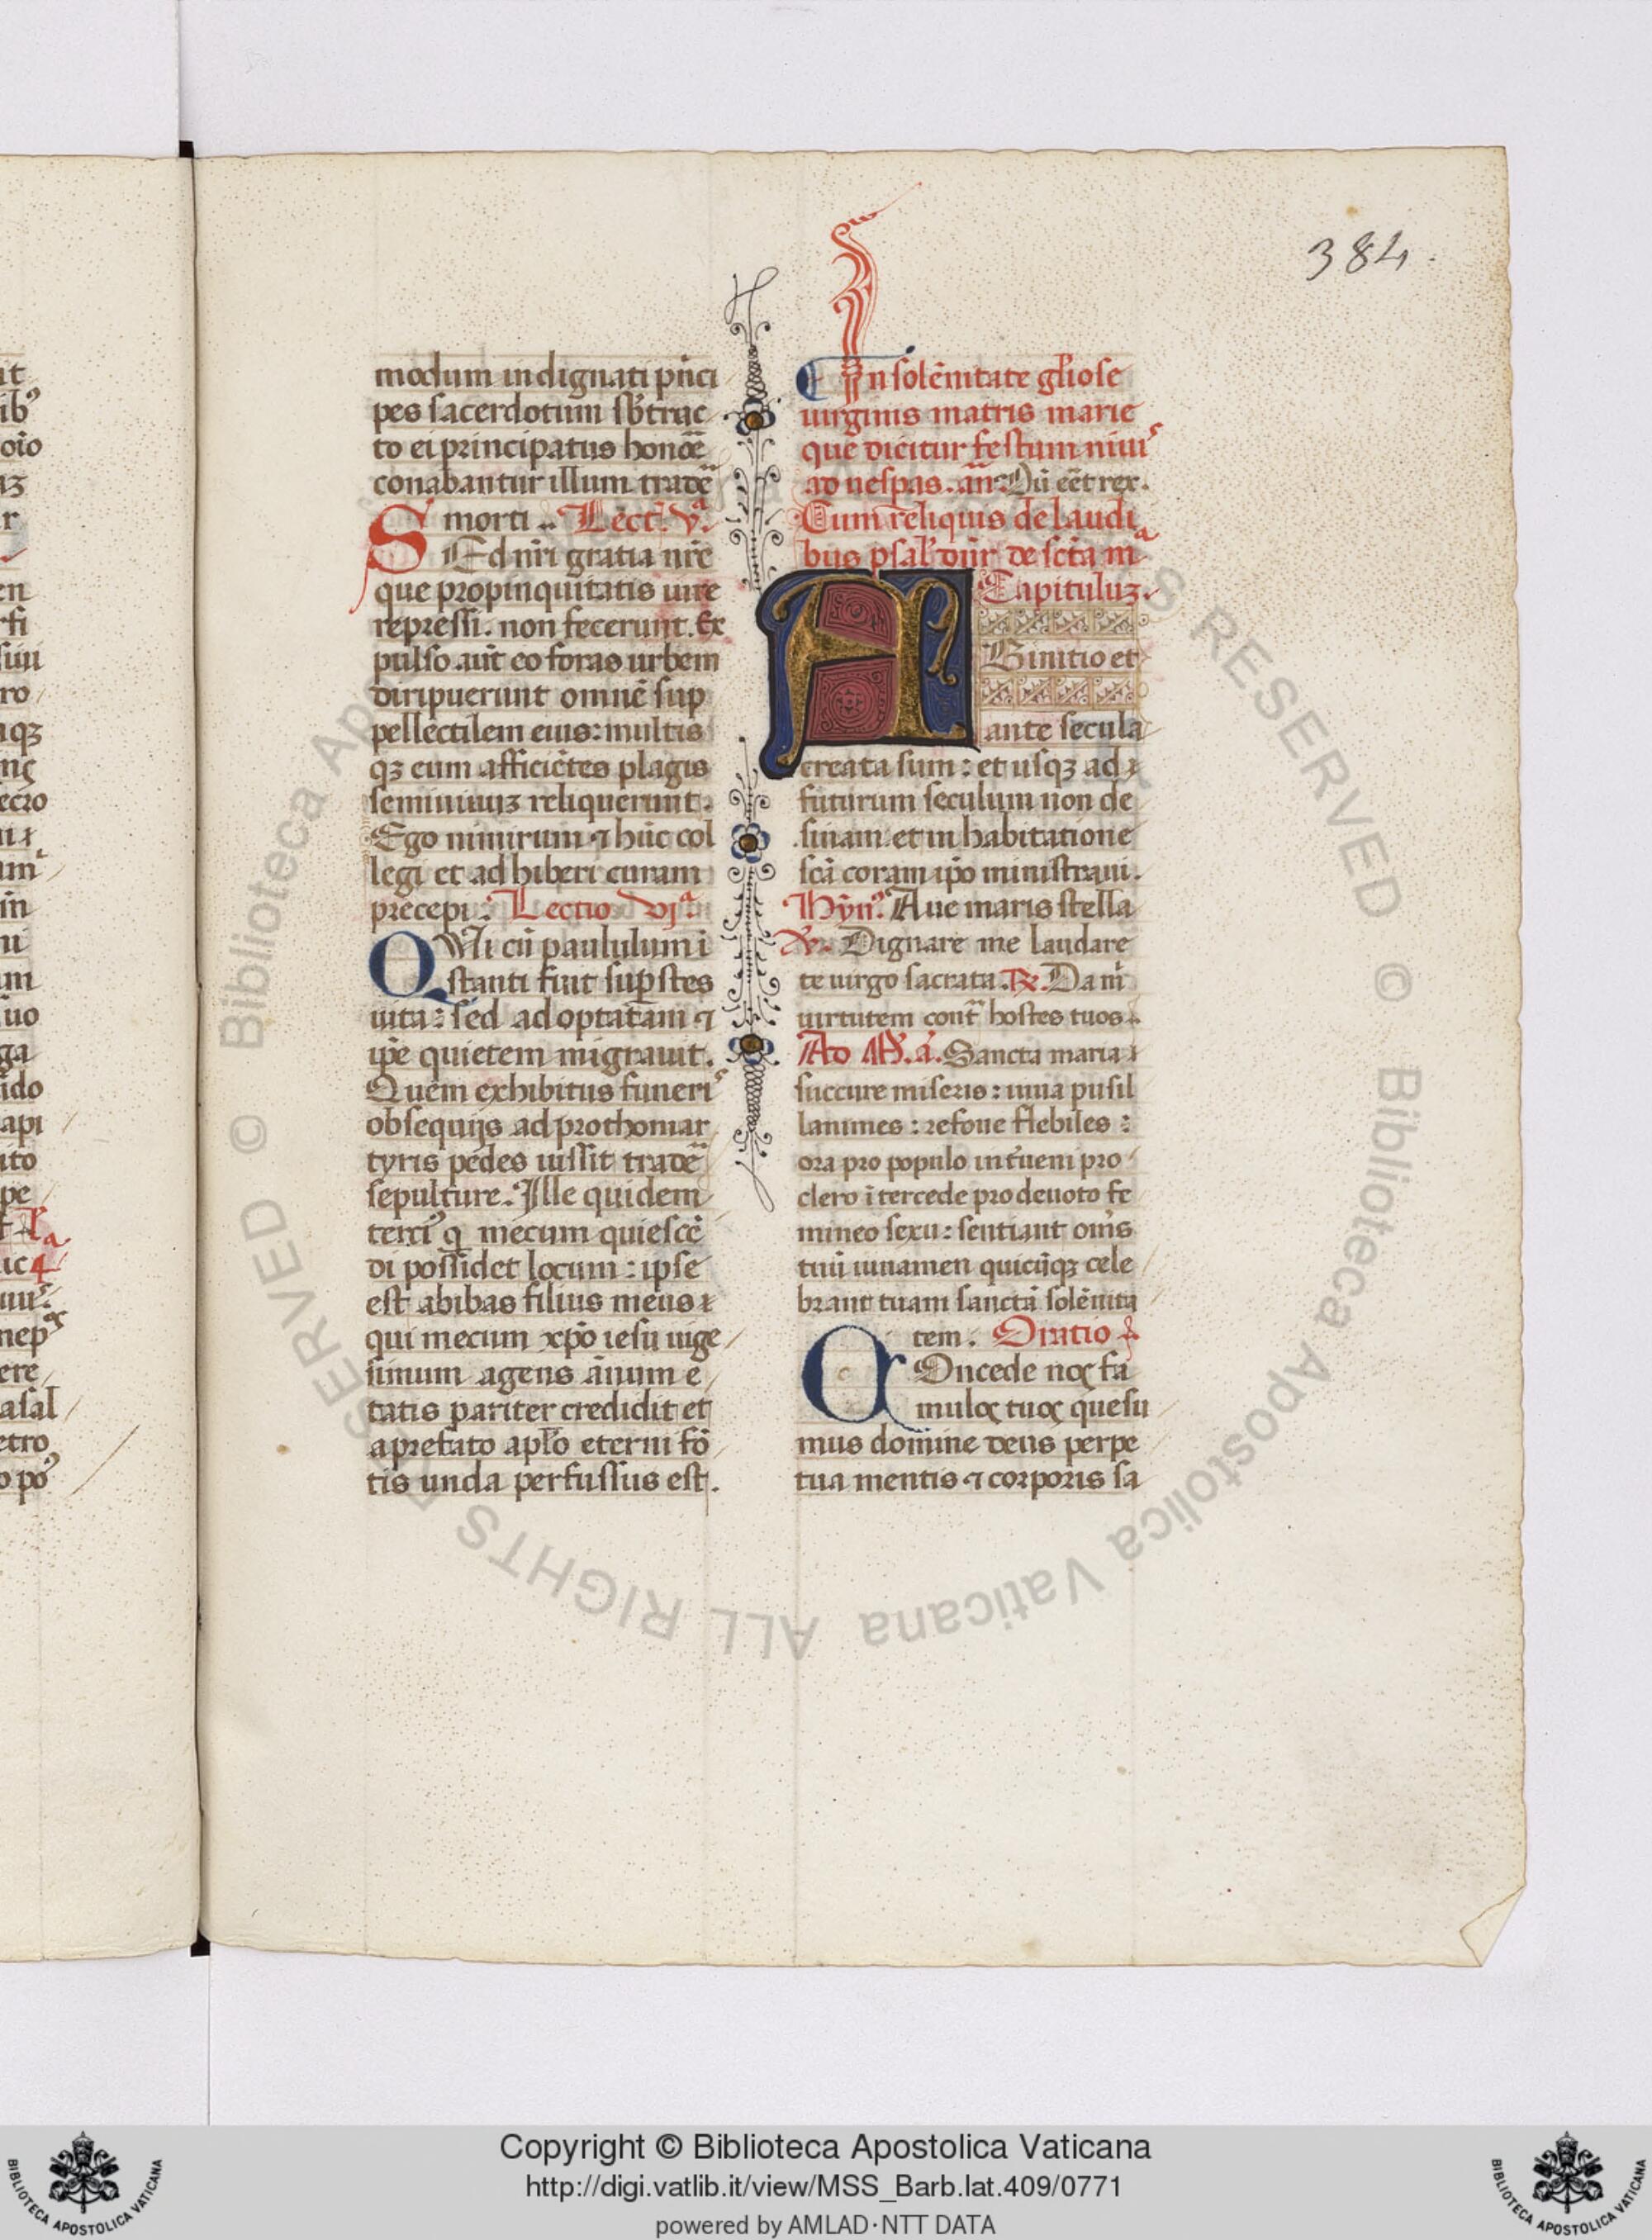 384.
modum indignati pͥnci
pes sacerdotum sb̾trac
to ei principatus honoꝛē
conabantur illum tradē
morti .. Lect. vª.
SEd nr̄i gratia nr̄e
que propinquitatis uire
repressi. non fecerunt. Ex
pulso aūt eo foras urbem
diripuerunt omnē sup
pellectilem eius: multis
qꝫ eum afficiētes plagis
seminiuuꝫ reliquerunt.
Ego nimirum ⁊ hūc col
legi et adhiberi curam
precepi. Lectio vjª.
QVi cū paululum i
stanti fuit suꝑstes
uita: sed ad optatam ⁊
ip̄e quietem migrauit.
Quem exhibitus funerꝰ
obsequijs ad prothomar
tyris pedes iussit tradē
sepulture. Ille quidem
tercꝰ q̄ mecum quiescē
di possidet locum: ipse
est abibas filius meus
qui mecum xp̄o iesu uige
simum agens ānum e
tatis pariter credidit et
a prefato apl̄o eterni fō
tis unda perfussus est.
In solēnitate gl̄iose
uirginis matris marie
que dicitur festum niuiˢ
ad uesꝑas. an̄. Dū eēt rex.
Cum reliquis de laudi
bus psal̄ dn̄r de sctā mª
Capituluꝫ.
ABinitio et
ante secula
creata sum: et usqꝫ ad
futurum seculum non de
sinam. et in habitatione
scā coram ip̄o ministraui.
Hȳnꝰ. Aue maris stella
℣. Dignare me laudare
te uirgo sacrata. ℞. Da mͥ
uirtutem cont̄ hostes tuos.
Ad M̄. ā. Sancta maria
succure miseris: iuua pusil
lanimes: refoue flebiles:
ora pro populo int̾ueni pro
clero ītercede pro deuoto fe
mineo sexu: sentiant om̄s
tuū iuuamen quicūqꝫ cele
brant tuam sanctā solēnita
tem. Oratio
COncede noꝭ fa
muloꝭ tuoꝭ quesu
mus domine deus perpe
tua mentis ⁊ corporis sa
Copyright © Biblioteca Apostolica Vaticana
http://digi.vatlib.it/view/MSS_Barb.lat.409/0771
powered by AMLAD·NTT DATA
BIBLIOTECA APOSTOLICA VATICANA
BIBLIOTECA APOSTOLICA VATICANA